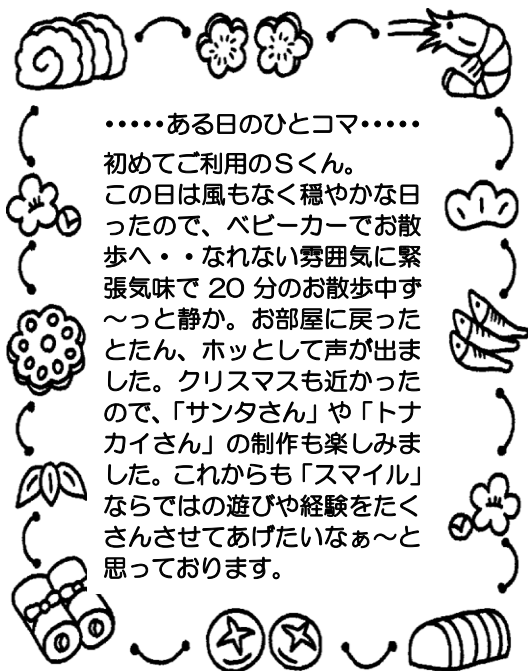 ・・・・・ある日のひとコマ・・・・・
初めてご利用のＳくん。
この日は風もなく穏やかな日
ったので、ベビーカーでお散
歩へ・・なれない雰囲気に緊
張気味で 20 分のお散歩中ず
～っと静か。お部屋に戻った
とたん、ホッとして声が出ま
した。クリスマスも近かった
ので、「サンタさん」や「トナ
カイさん」の制作も楽しみま
した。これからも「スマイル」
ならではの遊びや経験をたく
さんさせてあげたいなぁ～と
思っております。